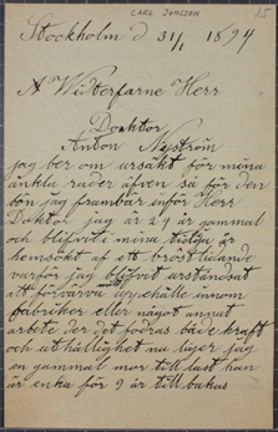 CARL JONSSON
Stockholm d 31/1 1894
A Widterfarne Herr
Docktor
Anton Nyström
jag ber om ursäkt för mina
änkla rader äfven så för den
bön jag frambär inför Herr
Doktor jag är 24 år gammal
och blifvit i mina tidiga år
hemsökt af ett bröstlidande
varför jag blifvit urståndsat
att förvärva mitt uppehälle innom
fabriker eller något annat
arbete der det fodras både kraft
och uthållighet nu liger jag
en gammal mor till last han
är enka för 9 år till bakas